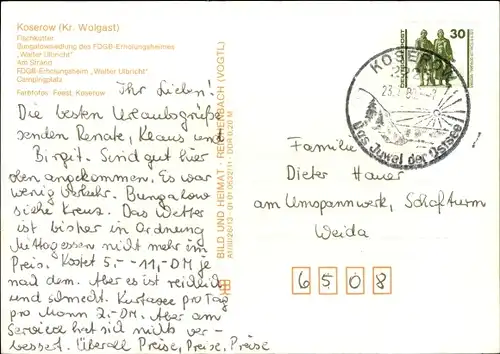 Koserow (Kr. Wolgast)
Fischkutter
Bungalowsiedlung des FDGB-Erholungsheimes
„Walter Ulbricht"
Am Strand
FDGB-Erholungsheim „Walter Ulbricht"
Campingplatz
Farbfotos: Feest, Koserow
Ihr Lieben!
Die besten Urlaubsgrüße
senden Renate, Klaus und
Birgit. Sind gut hier
oben angekommen. Es war
wenig Verkehr. Bungalow
siehe Kreuz. Das Wetter
ist bisher in Ordnung
Mittagessen nicht mehr im
Preis. Kostet 5,- -11,-DM je
nach dem. Aber es ist reichlich
und schmeckt. Kurtaxe pro Tag
pro Mann 2,-DM. Aber am
Service hat sich nichts ver-
bessert. Überall Preise, Preise, Preise
BILD UND HEIMAT · REICHENBACH (VOGTL)
DDR 0,20 M
30
KOSEROW
Das Juwel der Ostsee
Familie
Dieter Hauer
am Umspannwerk, Schafturm
Weida
6508